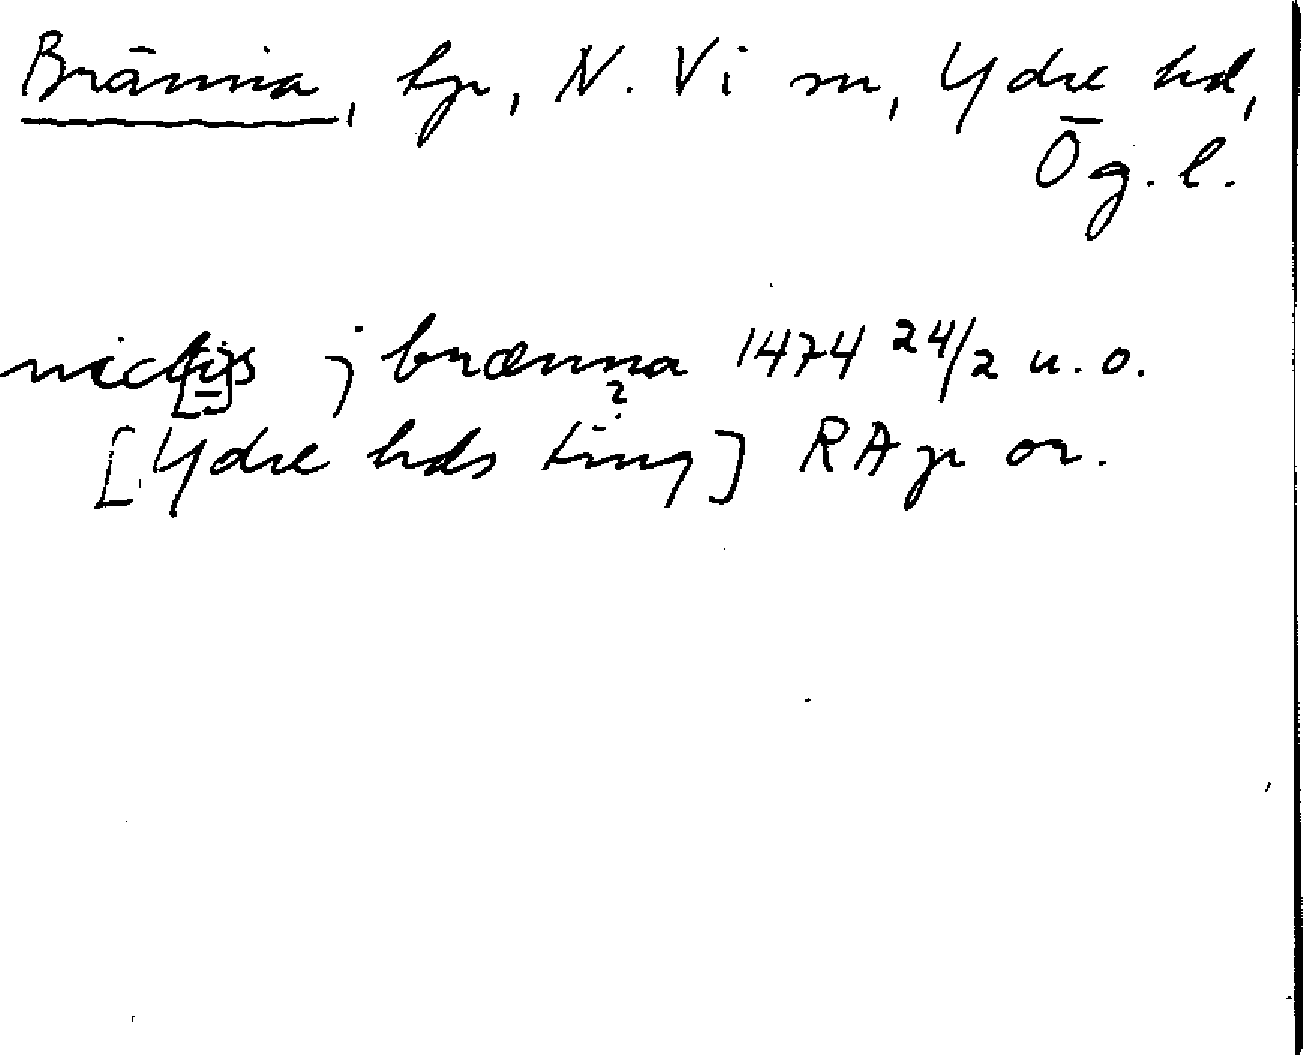 Bränna, by, N. Vi sn, Ydre hd,
Ög. l.
nicl[i]s j brænna 1474 24/2 u. o.
?
[Ydre hds ting] RAp or.